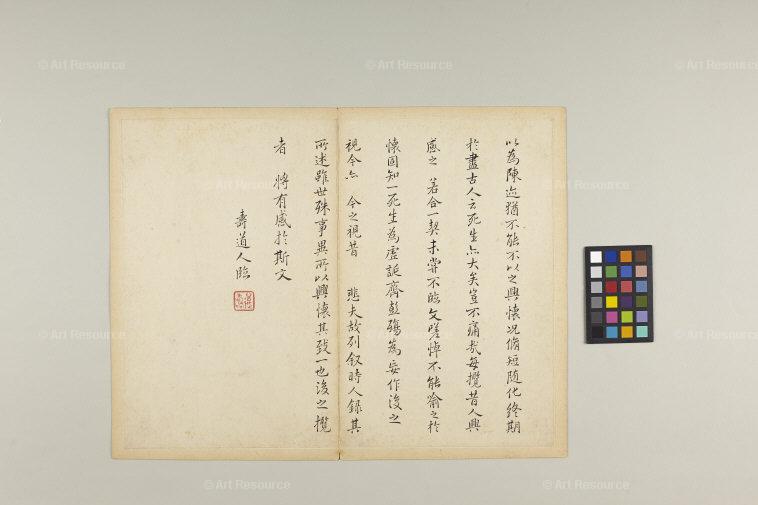 以為陳迹猶不能不以之興懷况脩短随化終期
於盡古人云死生亦大矣豈不痛哉每攬昔人興
感之 若合一契未嘗不臨文嗟悼不能喻之於
懷固知一死生為虛誕齊彭殤為妄作後之
視今亦 今之視昔 悲夫故列叙時人録其
所述雖世殊事異所以興懷其致一也後之攬
者 將有感於斯文
壽道人臨
© Art Resource
© Art Resource
© Art Resource
© Art Resource
© Art Resource
© Art Resource
© Art Resource
© Art Resource
© Art Resource
© Art Resource
© Art Resource